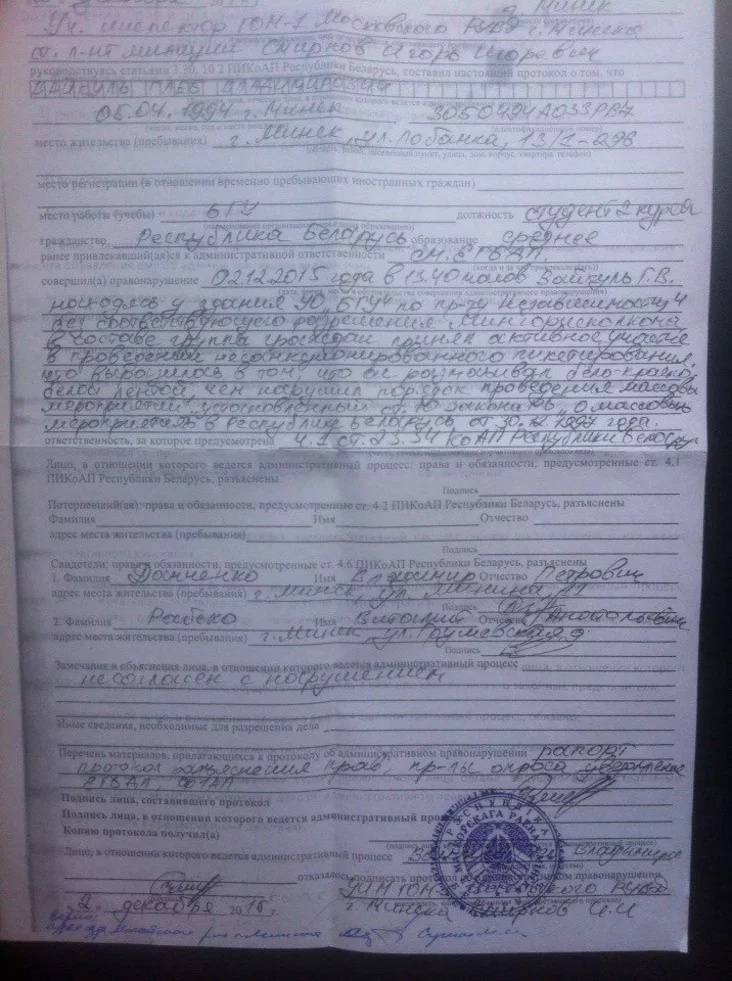 г. Минск
Уч. инспектор ЮН-1 Московского РУВД г. Минска
ст. л-нт милиции Смирнов Игорь Игоревич
руководствуясь статьями 3.30, 10.2 ПИКоАП Республики Беларусь, составил настоящий протокол о том, что
05.04.1994 г. Минск 3050494А033РВ7
место жительства (пребывания) г. Минск, ул. Лобанка, 13/1-298
место регистрации (в отношении временно пребывающих иностранных граждан)
место работы (учебы) БГУ должность студент 2 курса
гражданство Республика Беларусь образование среднее
ранее привлекавший(ая)ся к административной ответственности см. ЕГБДП.
совершил(а) правонарушение 02.12.2015 года в 13.40 часов Г.В.
находясь у здания УО "БГУ" по пр-ту Независимости, 4
без соответствующего разрешения Мингорисполкома
в составе группы граждан принял активное участие
в проведении несанкционированного пикетирования,
что выразилось в том, что он размахивал бело-красно-
белой лентой, чем нарушил порядок проведения массовых
мероприятий, установленный ст. 10 Закона РБ "О массовых
мероприятиях в Республике Беларусь от 30.12.1997 года.
ответственность, за которое предусмотрена ч.1 ст. 23.34 КоАП Республики Беларусь
Лицо, в отношении которого ведется административный процесс: права и обязанности, предусмотренные ст. 4.1
ПИКоАП Республики Беларусь, разъяснены
Подпись
Потерпевший(ая): права и обязанности, предусмотренные ст. 4.2 ПИКоАП Республики Беларусь, разъяснены
Фамилия Имя Отчество
адрес места жительства (пребывания)
Подпись
Свидетели: права и обязанности, предусмотренные ст. 4.6 ПИКоАП Республики Беларусь, разъяснены
1. Фамилия Данченко Имя Владимир Отчество Петрович
адрес места жительства (пребывания) г. Минск, ул.
Подпись
2. Фамилия Имя Виталий Отчество Анатольевич
адрес места жительства (пребывания) г. Минск ул.
Подпись
Замечания и объяснения лица, в отношении которого ведется административный процесс
не согласен с нарушением
Иные сведения, необходимые для разрешения дела
Перечень материалов, прилагающихся к протоколу об административном правонарушении рапорт
протокол разъяснения прав, пр-лы опроса
Подпись лица, составившего протокол
Подпись лица, в отношении которого ведется административный процесс
Копию протокола получил(а)
Лицо, в отношении которого ведется административный процесс
отказалось подписать протокол об административном правонарушении
УИМ ЮН-1 Московского РУВД
2 декабря 2015 г. г. Минска Смирнов И.И